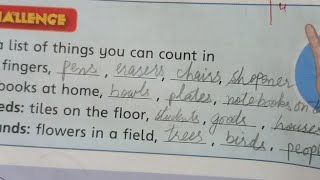 CHALLENGE
a list of things you can count in
fingers, pens, erasers, chairs, sharpner
books at home, bowls, plates, notebooks on
eds: tiles on the floor, students, goods, houses
ands: flowers in a field, trees, birds, people